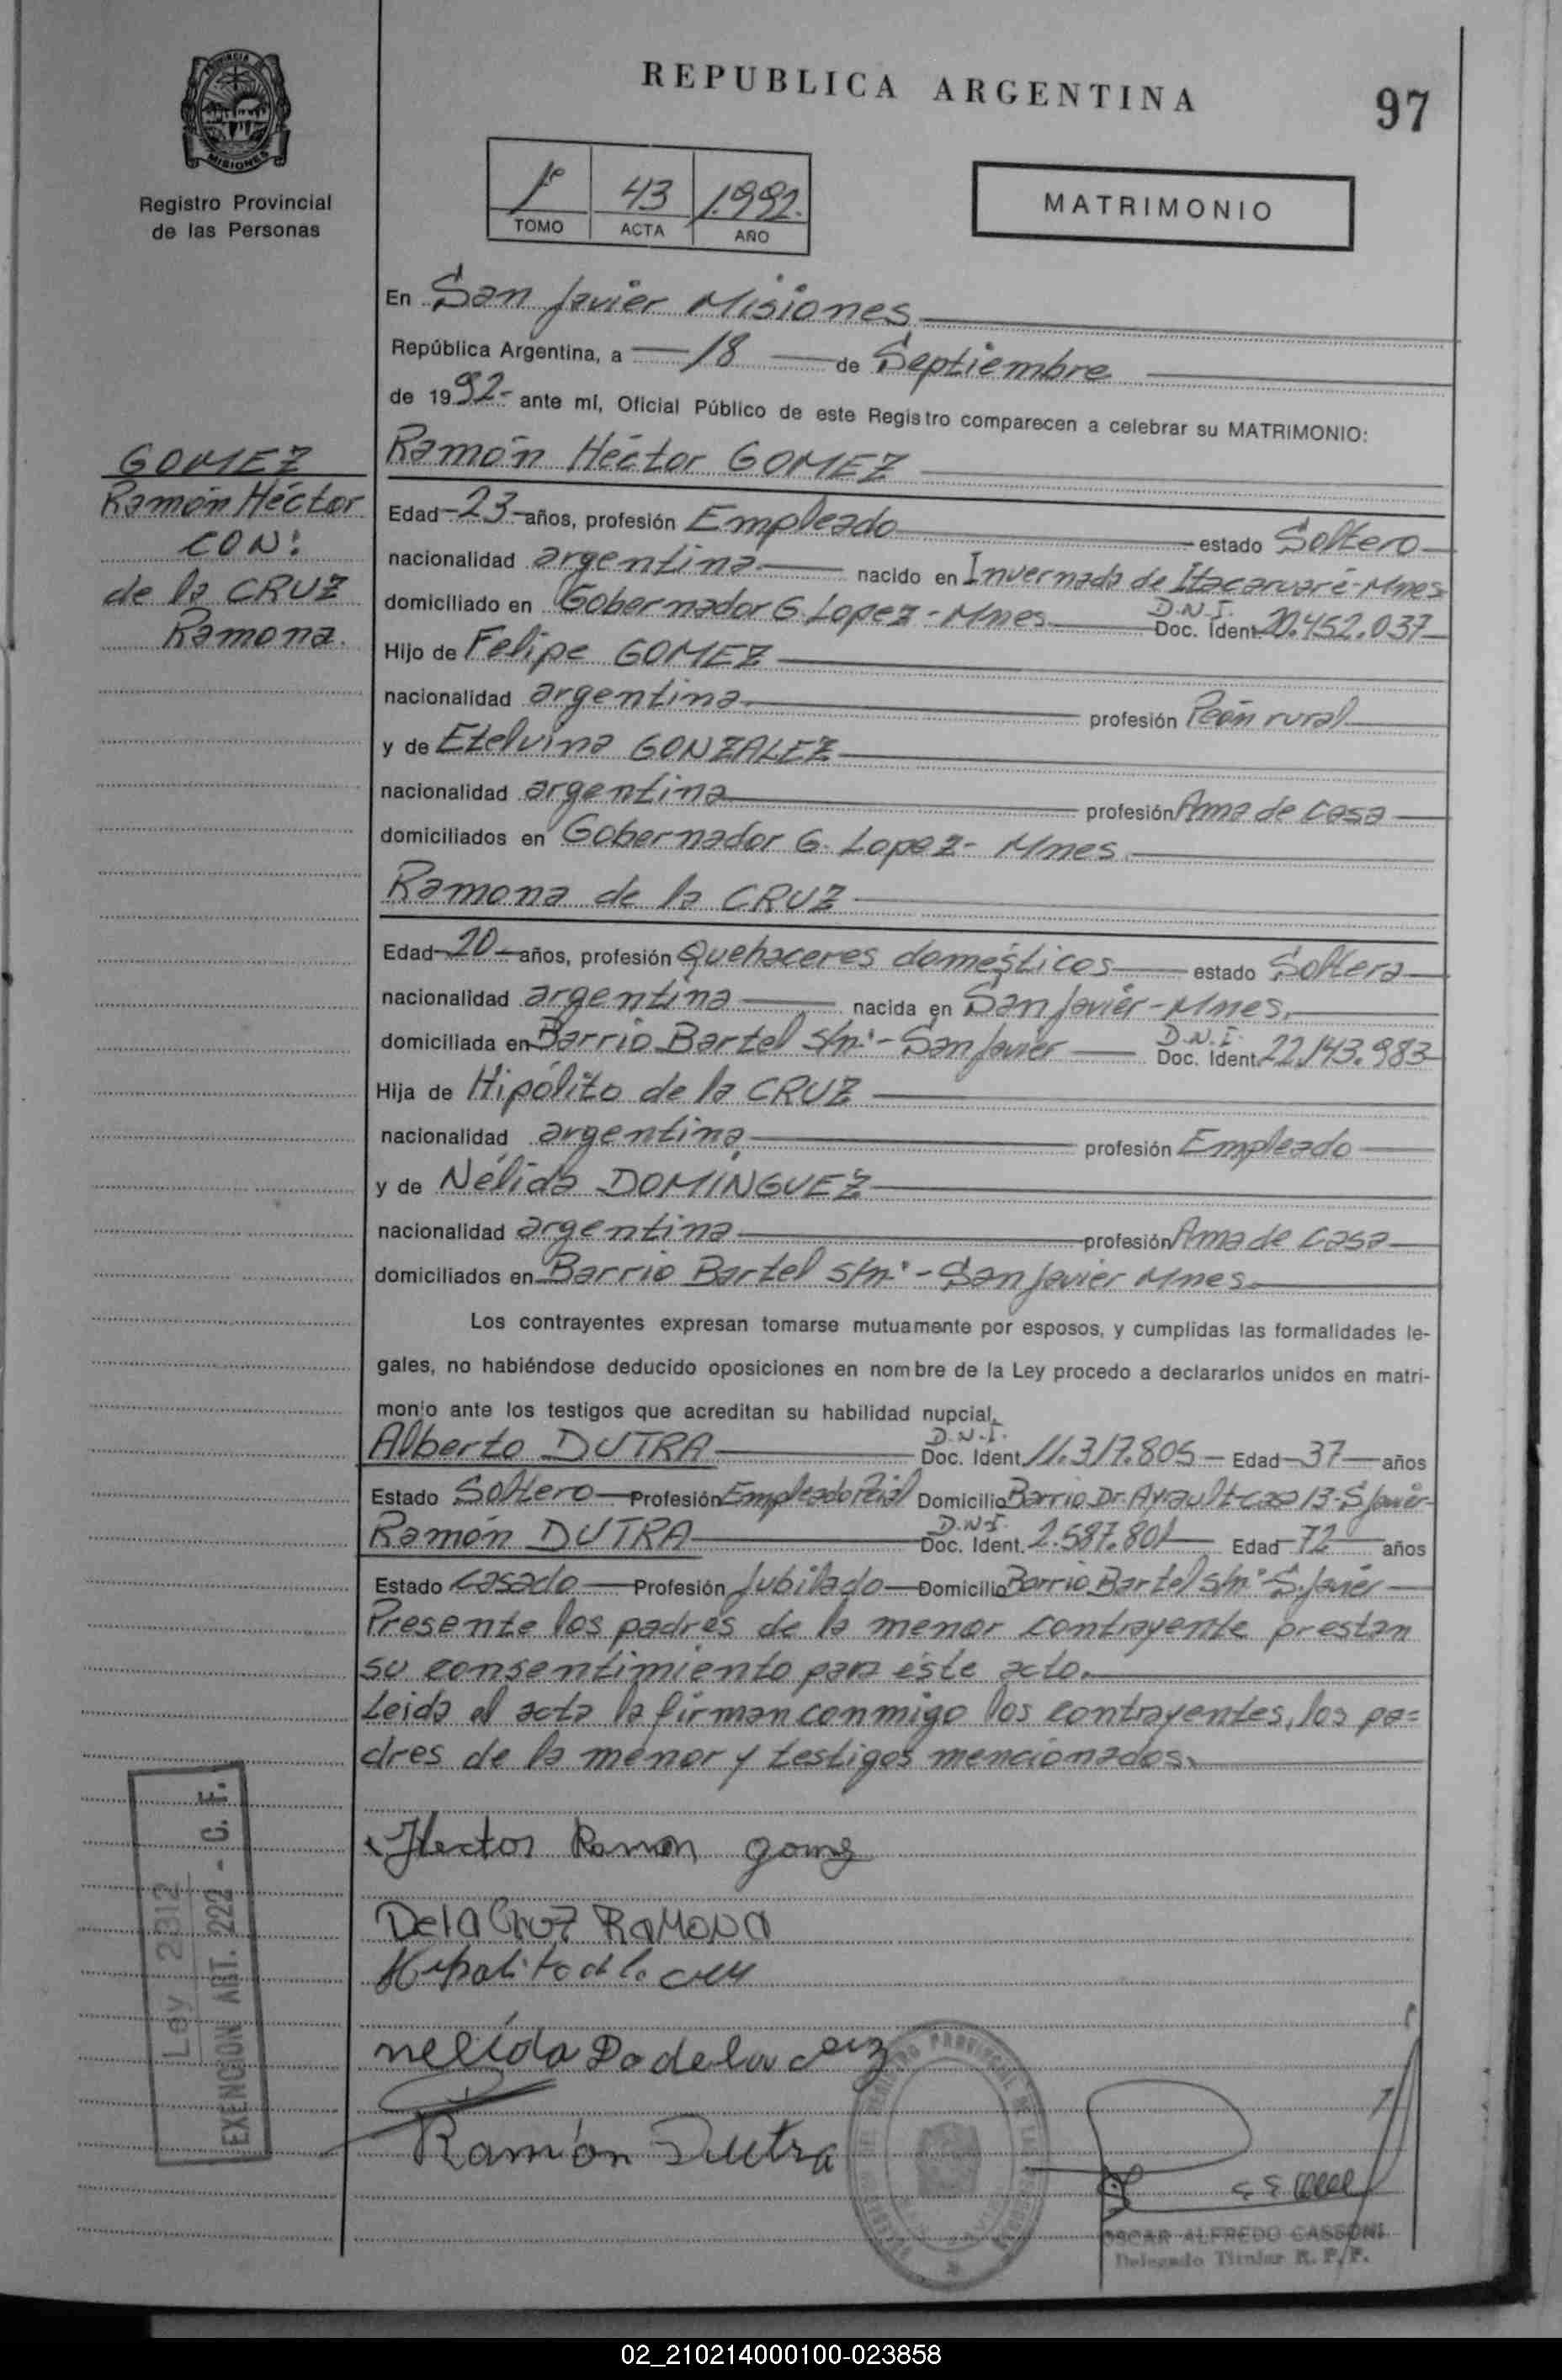 REPUBLICA ARGENTINA
97
PROVINCIA
MISIONES
Registro Provincial
de las Personas
1º 43 1.992.
TOMO ACTA AÑO
MATRIMONIO
En San Javier Misiones
República Argentina, a 18 de Septiembre
de 1992- ante mí, Oficial Público de este Registro comparecen a celebrar su MATRIMONIO:
GOMEZ
Ramón Héctor
CON:
de la CRUZ
Ramona.
Ramón Héctor GOMEZ
Edad -23- años, profesión Empleado estado Soltero
nacionalidad argentina nacido en Invernada de Itacaruaré-Mnes
domiciliado en Gobernador G. Lopez - Mnes D.N.I. Doc. Ident 20.452.037
Hijo de Felipe GOMEZ
nacionalidad argentina profesión Peón rural
y de Etelvina GONZALEZ
nacionalidad argentina profesión Ama de casa
domiciliados en Gobernador G. Lopez- Mnes.
Ramona de la CRUZ
Edad -20- años, profesión Quehaceres domésticos estado Soltera
nacionalidad argentina nacida en San Javier - Mnes.
domiciliada en Barrio Bartel s/nº - San Javier D.N.I. Doc. Ident. 22.143.983
Hija de Hipólito de la CRUZ
nacionalidad argentina profesión Empleado
y de Nélida DOMINGUEZ
nacionalidad argentina profesión Ama de casa
domiciliados en Barrio Bartel s/nº - San Javier Mnes.
Los contrayentes expresan tomarse mutuamente por esposos, y cumplidas las formalidades le-
gales, no habiéndose deducido oposiciones en nombre de la Ley procedo a declararlos unidos en matri-
monio ante los testigos que acreditan su habilidad nupcial.
Alberto DUTRA D.N.I. Doc. Ident 11.317.805 - Edad 37 años
Estado Soltero Profesión Empleado Pcial Domicilio Barrio Dr. Ayrault-casa 13-S. Javier-
Ramón DUTRA D.N.I. Doc. Ident. 2.587.801 Edad 72 años
Estado casado Profesión Jubilado Domicilio Barrio Bartel s/nº S. Javier
Presente los padres de la menor contrayente prestan
su consentimiento para éste acto.
Leida el acta la firman conmigo los contrayentes, los pa=
dres de la menor y testigos mencionados.
Hector Ramon gomez
De la Cruz RaMona
Hipolito de la cruz
nelida Do de la cruz
Ramón Dutra
Ley 2312
EXENCION ART. 222 - C. F.
OSCAR ALFREDO CASSONI
Delegado Titular R. P. P.
02_210214000100-023858